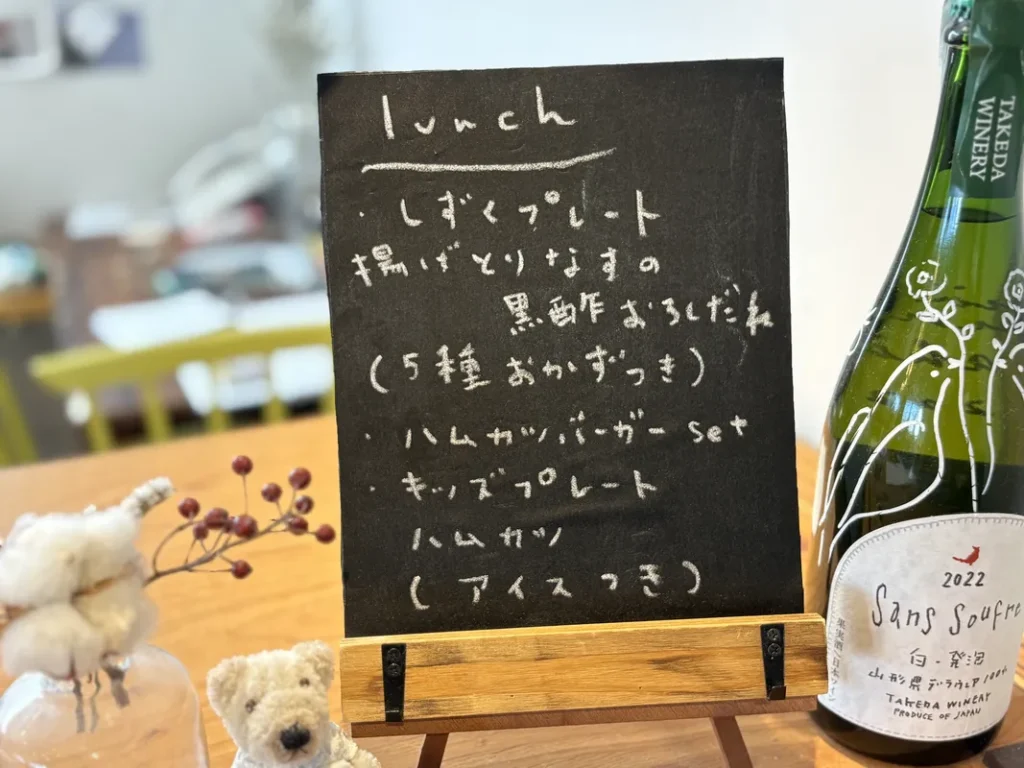 lunch
・しずくプレート
揚げとりなすの
黒酢おろしだれ
(5種おかずつき)
・ハムカツバーガーset
・キッズプレート
ハムカツ
(アイスつき)
TAKEDA
WINERY
2022
Sans Soufre
白・発泡
山形県デラウェア100%
TAKEDA WINERY
PRODUCE OF JAPAN
果実酒 日本ワイン